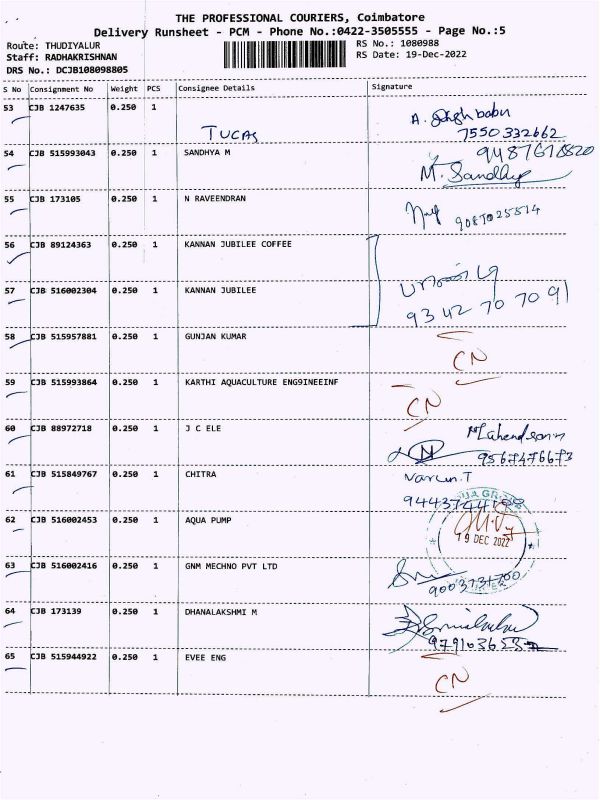 THE PROFESSIONAL COURIERS, Coimbatore
Delivery Runsheet - PCM - Phone No.:0422-3505555 - Page No.:5
Route: THUDIYALUR RS No.: 1080988
Staff: RADHAKRISHNAN RS Date: 19-Dec-2022
DRS No.: DCJB108098805
S No Consignment No Weight PCS Consignee Details Signature
53 CJB 1247635 0.250 1 TUCAS
7550332662
54 CJB 515993043 0.250 1 SANDHYA M
M. Sandhya
55 CJB 173105 0.250 1 N RAVEENDRAN
9087025514
56 CJB 89124363 0.250 1 KANNAN JUBILEE COFFEE
57 CJB 516002304 0.250 1 KANNAN JUBILEE
93 42 70 70 91
58 CJB 515957881 0.250 1 GUNJAN KUMAR
CN
59 CJB 515993864 0.250 1 KARTHI AQUACULTURE ENG9INEEINF
CN
60 CJB 88972718 0.250 1 J C ELE
9567476673
61 CJB 515849767 0.250 1 CHITRA
Varun.T
62 CJB 516002453 0.250 1 AQUA PUMP
19 DEC 2022
63 CJB 516002416 0.250 1 GNM MECHNO PVT LTD
64 CJB 173139 0.250 1 DHANALAKSHMI M
65 CJB 515944922 0.250 1 EVEE ENG
CN